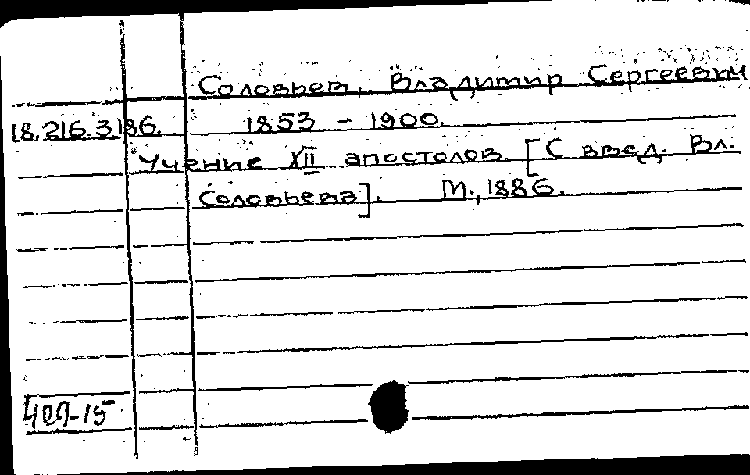 Соловьев, Владимир Сергеевич
18.216.3.186. 1853 - 1900.
Учение XII апостолов [С введ. Вл.
Соловьева]. М., 1886.
400-15